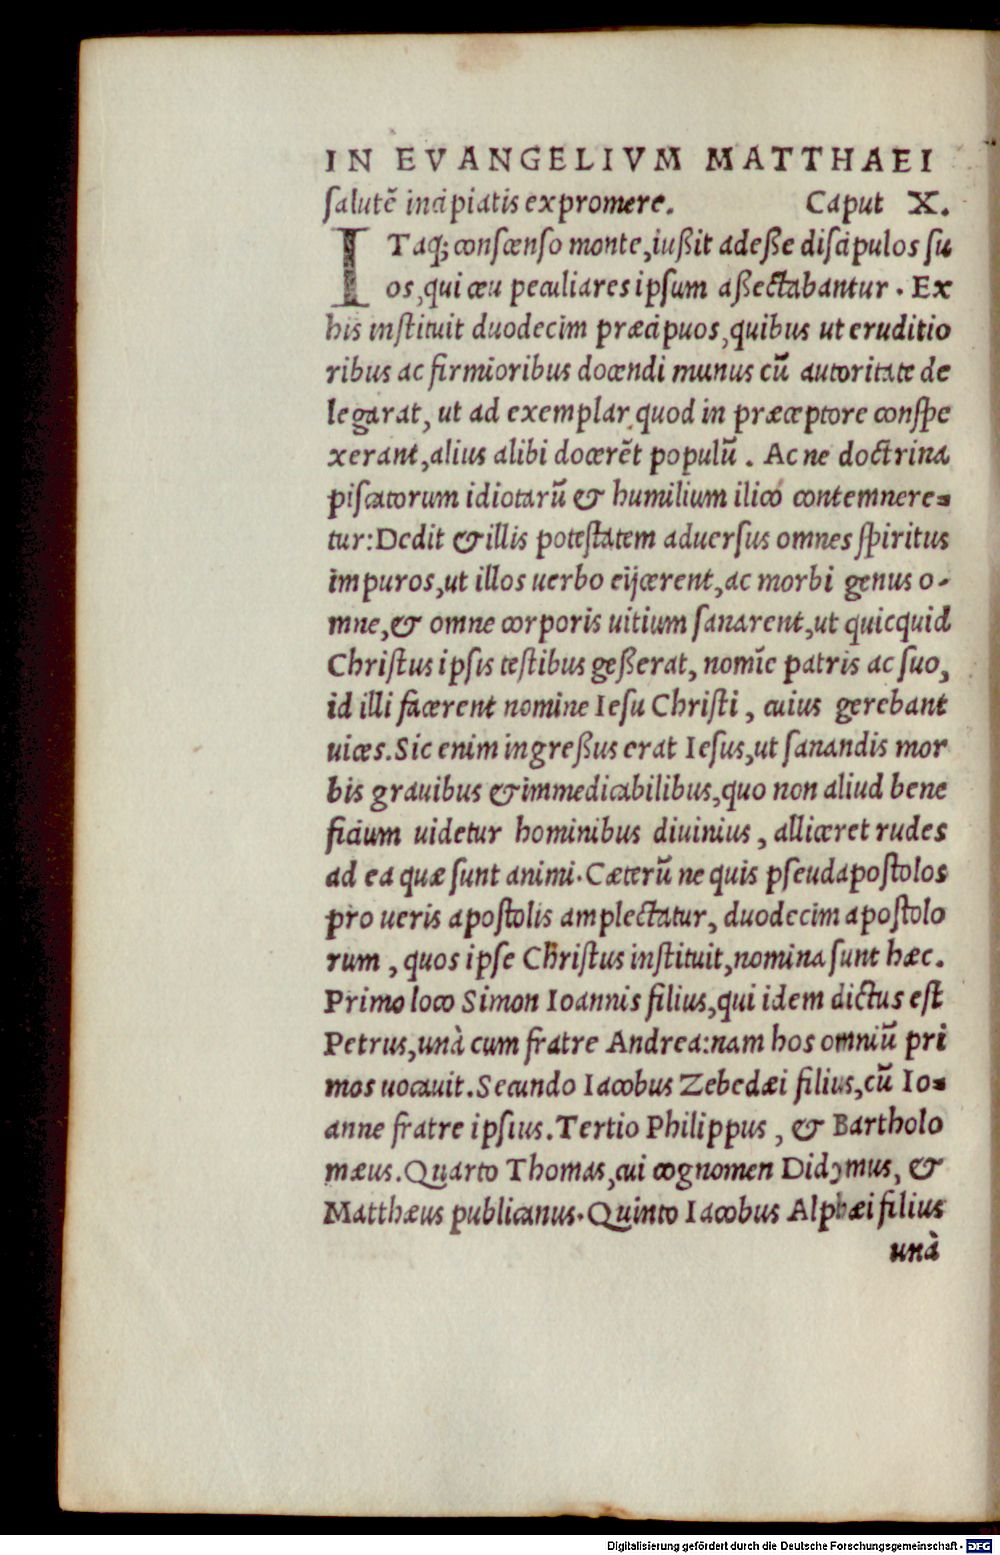 IN EVANGELIVM MATTHAEI
salutẽ incipiatis expromere. Caput X.
ITaq; conscenso monte, iußit adeße discipulos su
os, qui ceu peculiares ipsum aßectabantur. Ex
his instituit duodecim præcipuos, quibus ut eruditio
ribus ac firmioribus docendi munus cũ autoritate de
legarat, ut ad exemplar quod in præceptore conspe
xerant, alius alibi docerẽt populũ. Ac ne doctrina
piscatorum idiotarũ & humilium ilico contemnere-
tur: Dedit & illis potestatem aduersus omnes spiritus
impuros, ut illos uerbo eijcerent, ac morbi genus o-
mne, & omne corporis uitium sanarent, ut quicquid
Christus ipsis testibus geßerat, nomĩe patris ac suo,
id illi facerent nomine Iesu Christi, cuius gerebant
uices. Sic enim ingreßus erat Iesus, ut sanandis mor
bis grauibus & immedicabilibus, quo non aliud bene
ficium uidetur hominibus diuinius, alliceret rudes
ad ea quæ sunt animi. Cæterũ ne quis pseudapostolos
pro ueris apostolis amplectatur, duodecim apostolo
rum, quos ipse Christus instituit, nomina sunt hæc.
Primo loco Simon Ioannis filius, qui idem dictus est
Petrus, unà cum fratre Andrea: nam hos omniũ pri
mos uocauit. Secundo Iacobus Zebedæi filius, cũ Io-
anne fratre ipsius. Tertio Philippus, & Bartholo
mæus. Quarto Thomas, cui cognomen Didymus, &
Matthæus publicanus. Quinto Iacobus Alphæi filius
unà
Digitalisierung gefördert durch die Deutsche Forschungsgemeinschaft - DFG